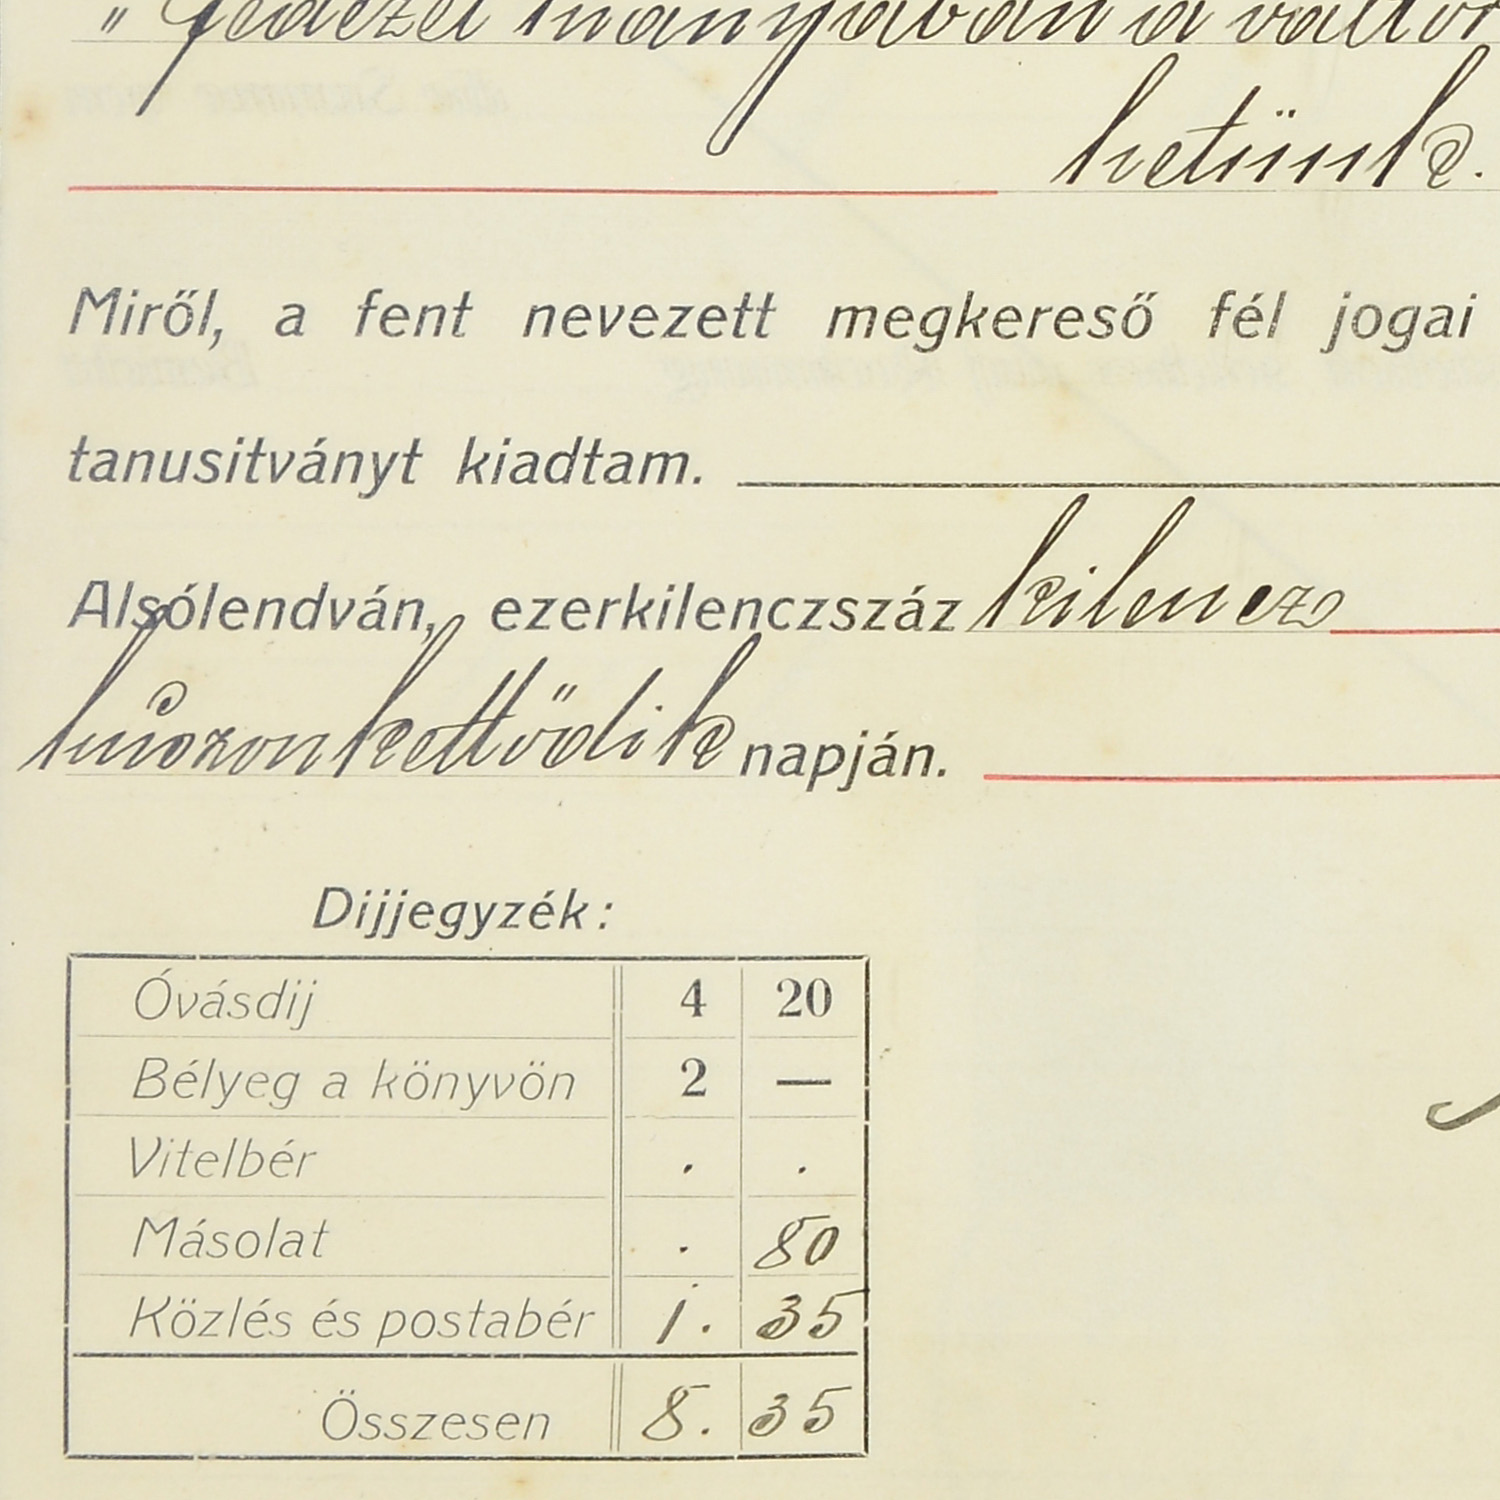 „Fedezet hiányában a váltót
hetünk.
Miről, a fent nevezett megkereső fél jogai
tanusitványt kiadtam.
Alsólendván, ezerkilenczszáz kilencz
huszonkettődik napján.
Dijjegyzék:
Óvásdij 4 20
Bélyeg a könyvön 2 —
Vitelbér . .
Másolat . 80
Közlés és postabér 1. 35
Összesen 8. 35